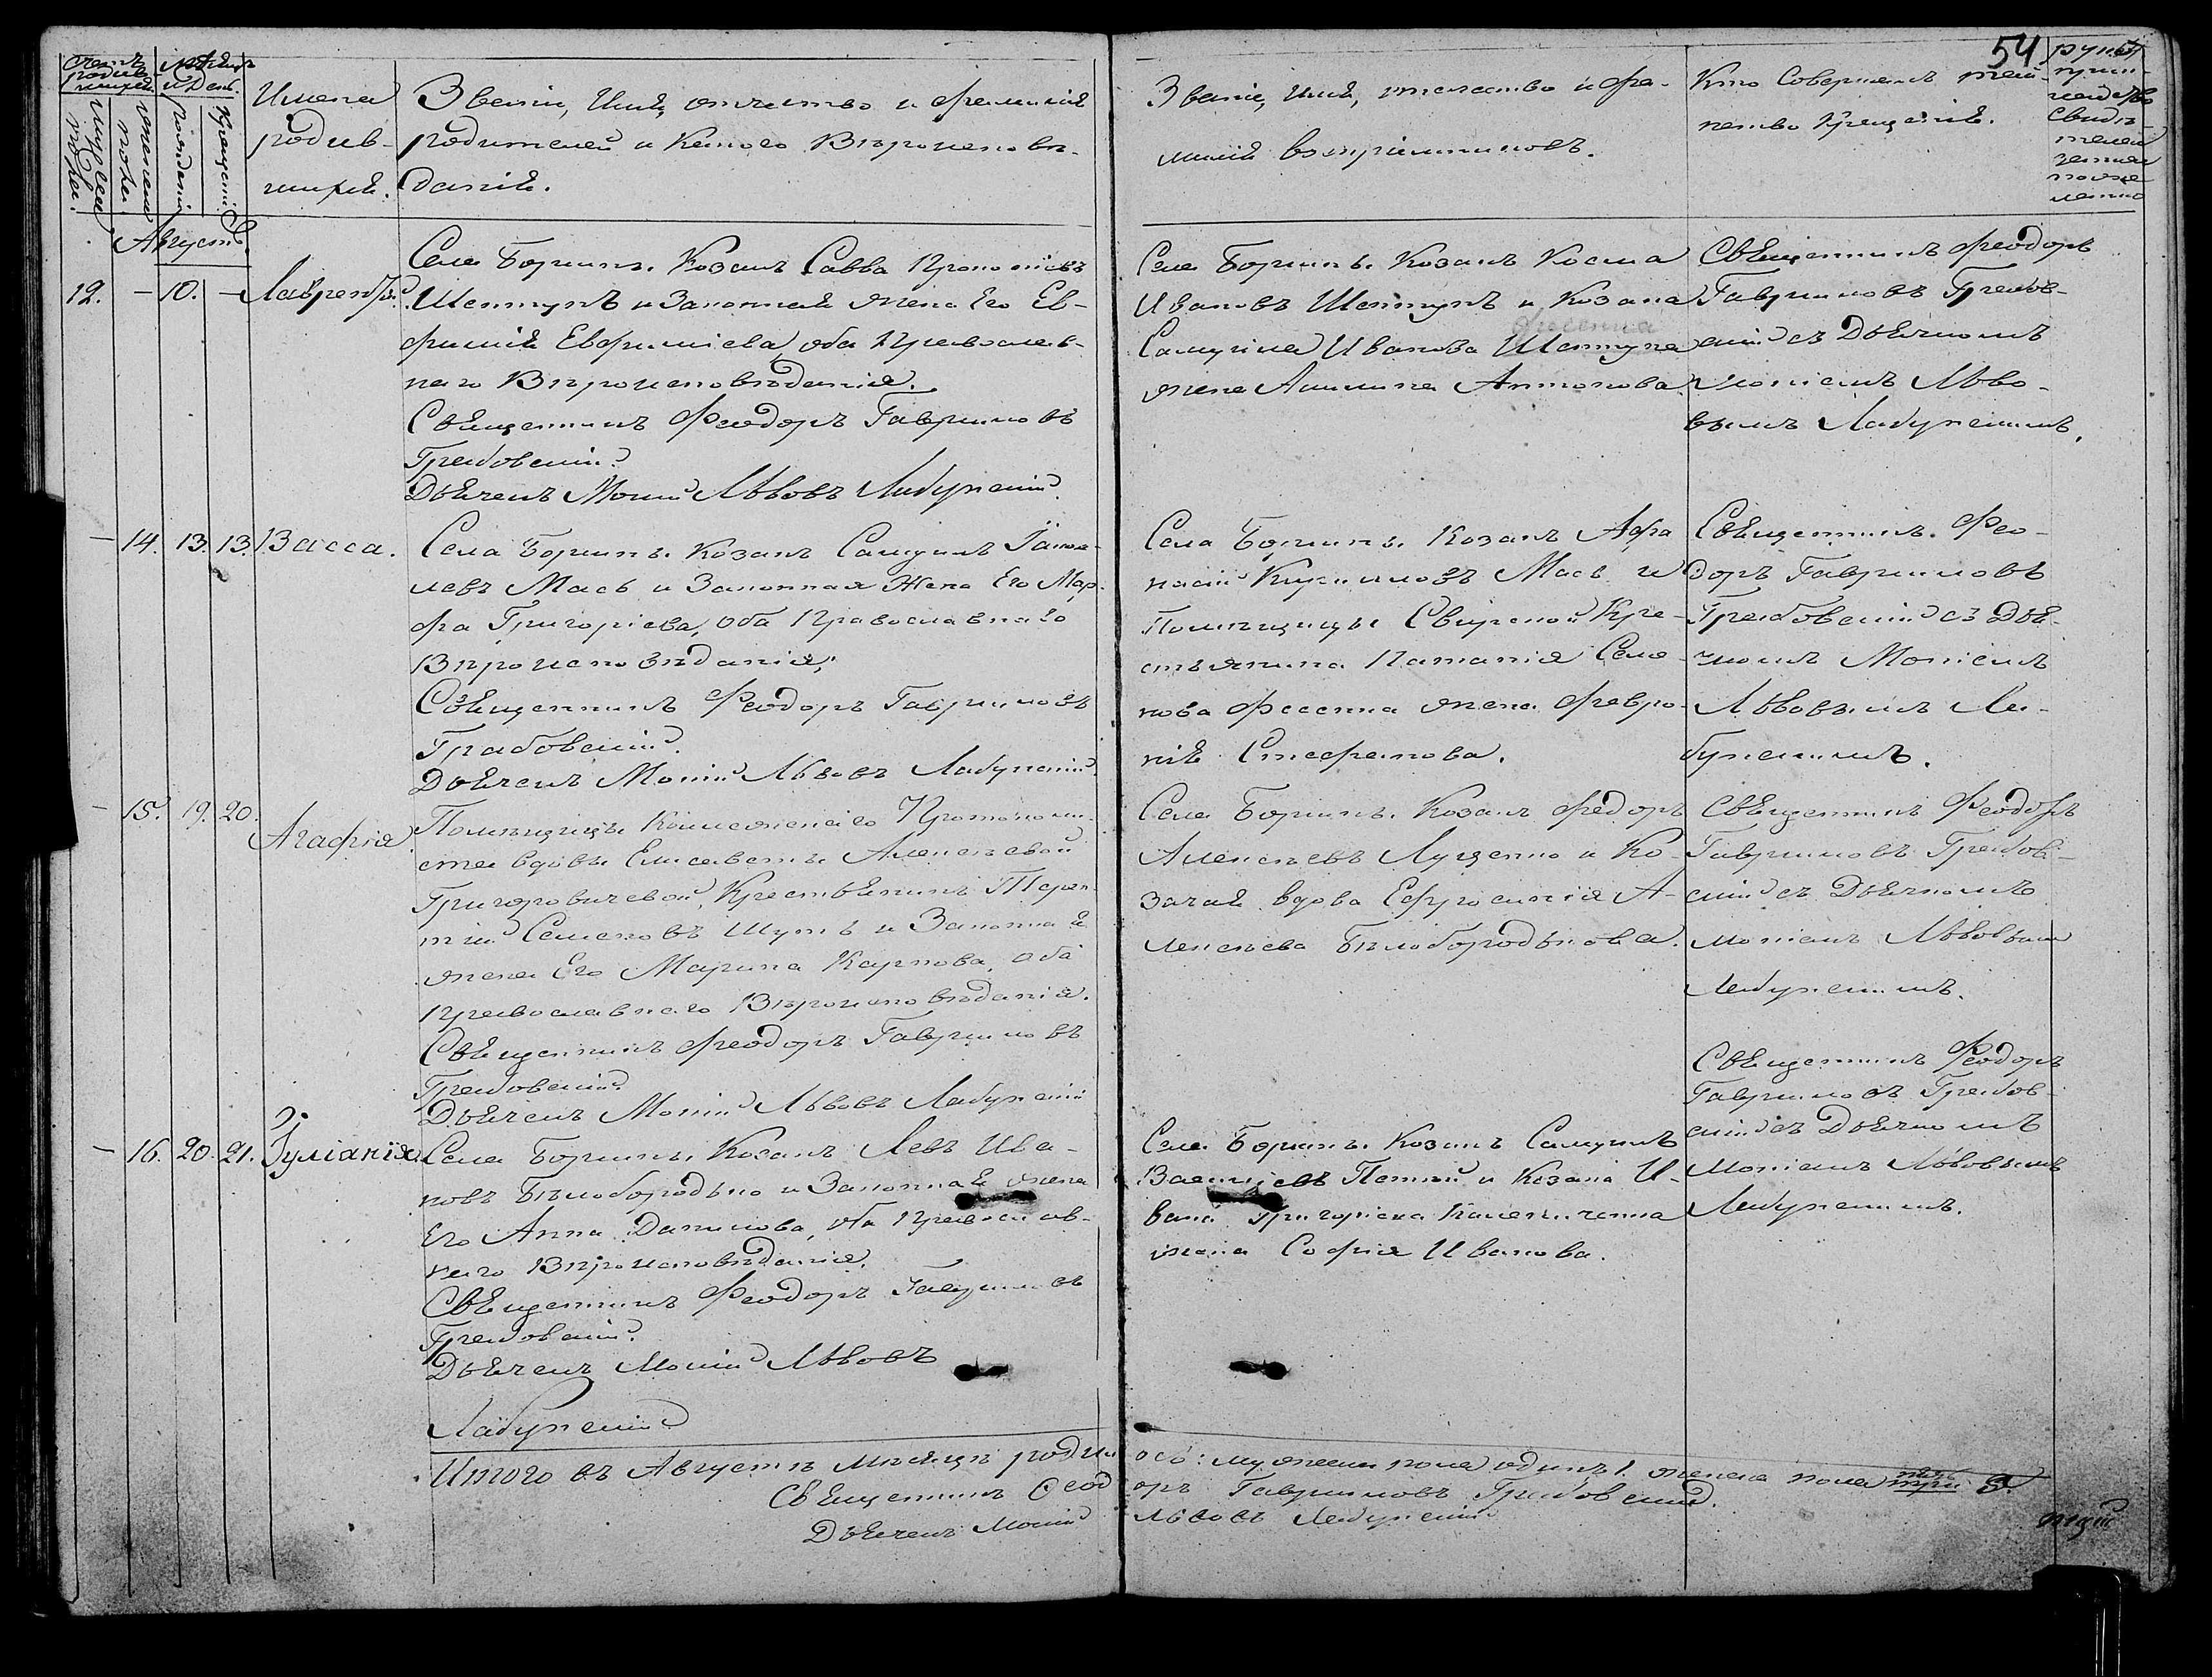 54
Счетъ родив-шихся.
Мѣсяцъ и День.
мужеска пола.
женска пола.
рожденія
крещенія
Имена
родив-
шихся.
Званіе, Имя, отчество и фамилія
родителей и какого Вѣроисповѣ-
данія.
Званіе, имя, отчество и фа-
милія воспріемниковъ.
Кто Совершалъ таин-
ство Крещенія.
Августъ.
12. – 10. – Лаврентій.
Села Боркинъ. Козакъ Савва Прокопіевъ
Шептунъ и Законная жена Его Ев-
фимія Евфиміева, оба Православ-
наго Вѣроисповѣданія.
Священникъ Феодоръ Гавриловъ
Грабовскій.
Дьячекъ Моисій Львовъ Лабунскій.
Козакъ Косма
Ивановъ Шептунъ и Козака
Самуила Иванова Шептуна
жена Акилина Антонова.
Священникъ Феодоръ
Гавриловъ Грабов-
скій съ Дьячкомъ
Моисіемъ Льво-
вымъ Лабунскимъ.
– 14. 13. 13. Васса.
Козакъ Самуилъ Іаков-
левъ Мась и Законная Жена Его Мар-
фа Григоріева, оба Православнаго
Вѣроисповѣданія.
Священникъ Феодоръ Гавриловъ
Грабовскій.
Дьячекъ Моисій Львовъ Лабунскій.
Козакъ Афа
насій Кириловъ Мась и
Помѣщицы Свирской Кре-
стьянина Семе-
нова жена Февро-
нія Стефанова.
Священникъ Фео-
доръ Гавриловъ
Грабовскій съ Дья-
чкомъ Моисіемъ
Львовымъ Ла-
бунскимъ.
– 15. 19. 20. Агафія
Помѣщицы
вдовы Елисаветы Алексѣевой
Григоровичевой, Крестьянинъ Терен-
тій Семеновъ Шутъ и Законная
жена Его Марина Карпова, оба
Православнаго Вѣроисповѣданія.
Священникъ Феодоръ Гавриловъ
Грабовскій
Дьячекъ Моисій Львовъ Лабунскій
Козакъ Федоръ
Алексѣевъ Луценко и Ко-
зачая вдова Ефросинія А-
лексѣева Бѣлобородькова.
Священникъ Феодоръ
Гавриловъ Грабов-
скій съ Дьячкомъ
Моисіемъ Львовымъ
Лабунскимъ.
– 16. 20. 21. Іуліанія.
Козакъ Левъ Ива-
новъ Бѣлобородько и Законная жена
Его Анна Данилова, оба Православ-
наго Вѣроисповѣданія.
Священникъ Феодоръ Гавриловъ
Грабовскій.
Дьячекъ Моисій Львовъ
Лабунскій
Козакъ Самуилъ
и Козака И-
вана Григоріева
жена Софія Иванова.
Священникъ Феодоръ
Гавриловъ Грабов-
скій съ Дьячкомъ
Моисіемъ Львовымъ
Лабунскимъ.
Итого въ Августѣ Мѣсяцѣ родил. особ: мужеска пола одинъ 1. женска пола три 3.
Священникъ Феодоръ Гавриловъ Грабовскій.
Дьячекъ Моисій Львовъ Лабунскій